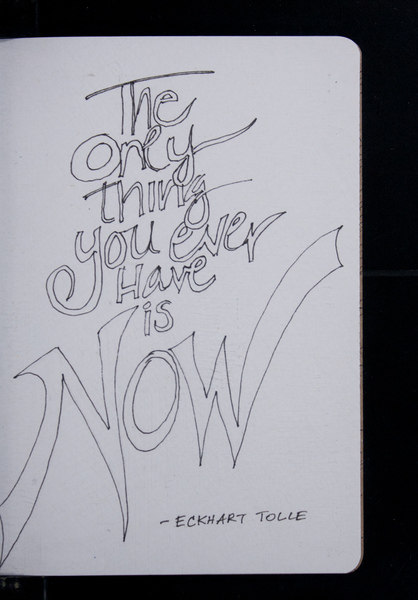 The
Only
thing
you ever
Have
is
NOW
- ECKHART TOLLE